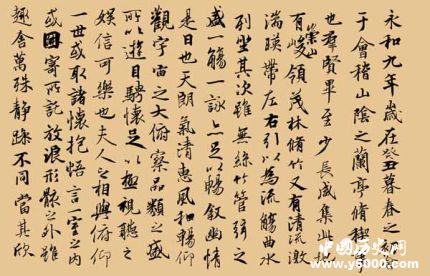 永和九年歲在癸丑暮春之
于會稽山陰之蘭亭脩稧
也羣賢畢至少長咸集此
有崇山峻領茂林脩竹又有清流激
湍暎帶左右引以為流觴曲水
列坐其次雖無絲竹管弦之
盛一觴一詠亦足以暢敘幽情
是日也天朗氣清惠風和暢仰
觀宇宙之大俯察品類之盛
所以遊目騁懷足以極視聽之
娛信可樂也夫人之相與俯仰
一世或取諸懷抱悟言一室之內
或因寄所託放浪形骸之外雖
趣舍萬殊靜躁不同當其欣
中国历史网
www.y6000.com